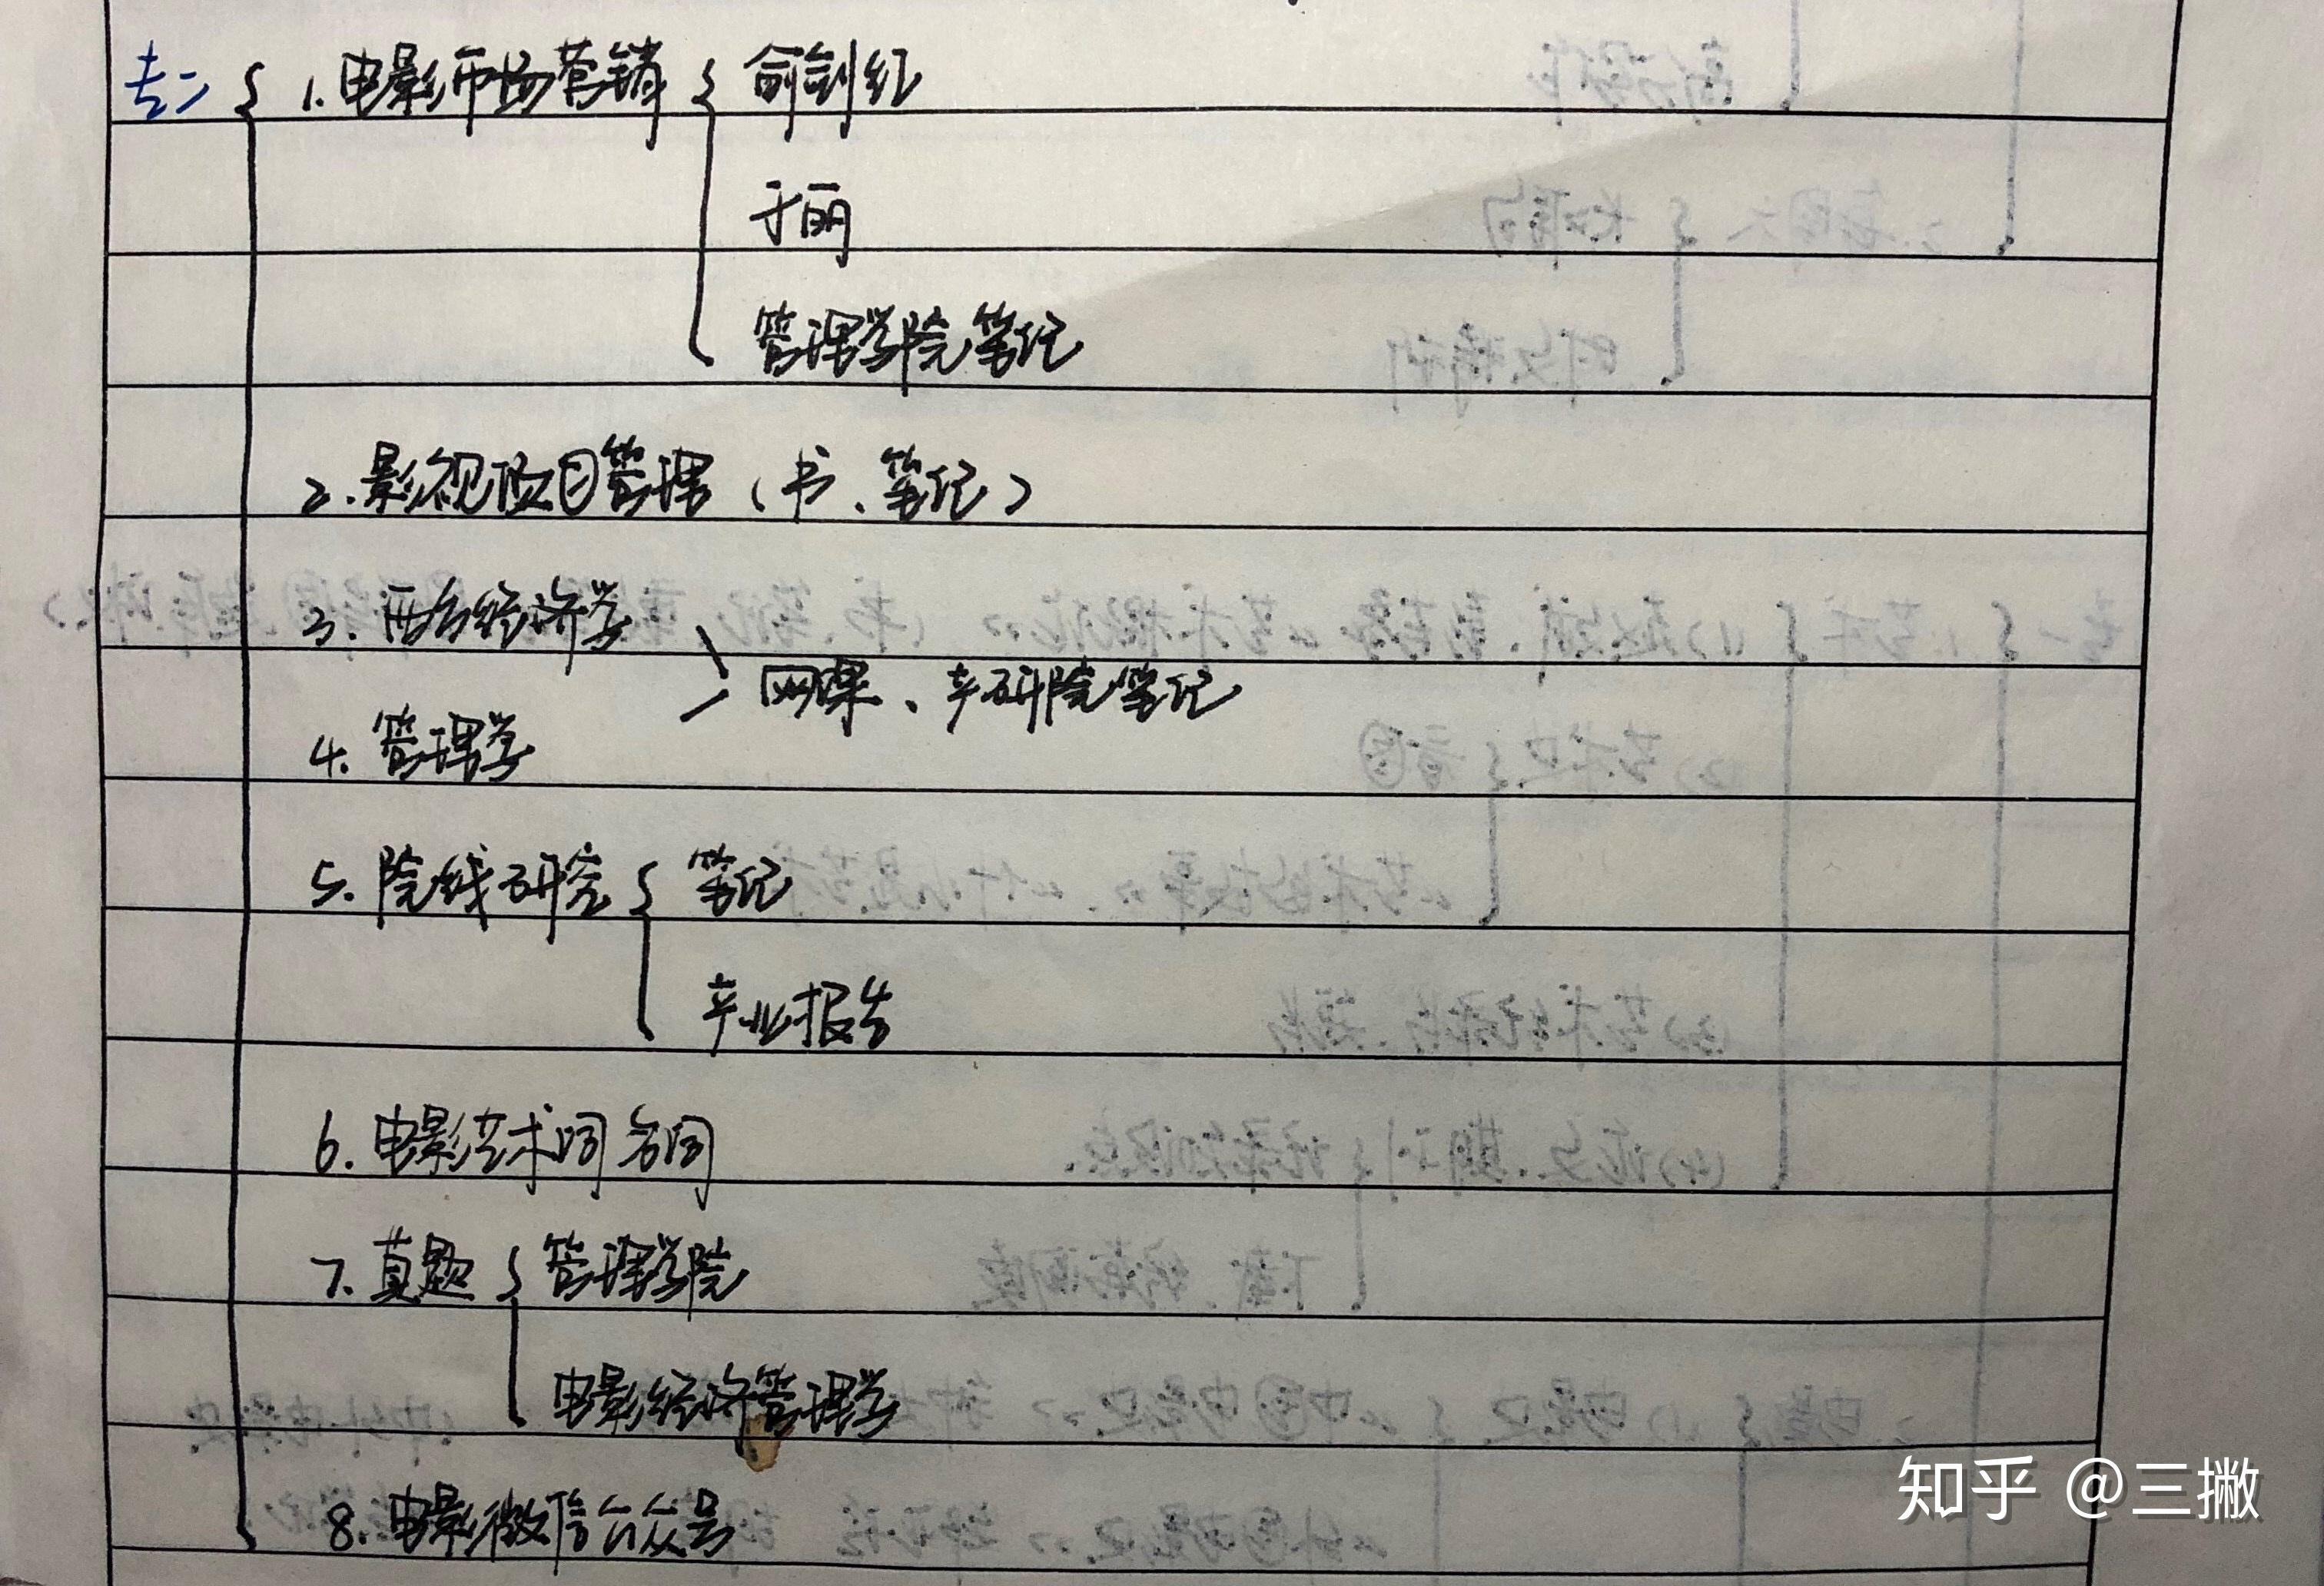 专二 { 1.电影市场营销 { 俞剑红
于丽
管理学院笔记
2.影视项目管理(书、笔记)
3.西方经济学
网课、产研院笔记
4.管理学
5.院线研究 { 笔记
产业报告
6.电影艺术词 名词
7.真题 { 管理学院
电影经济管理学
8.电影微信公众号
知乎 @三撇